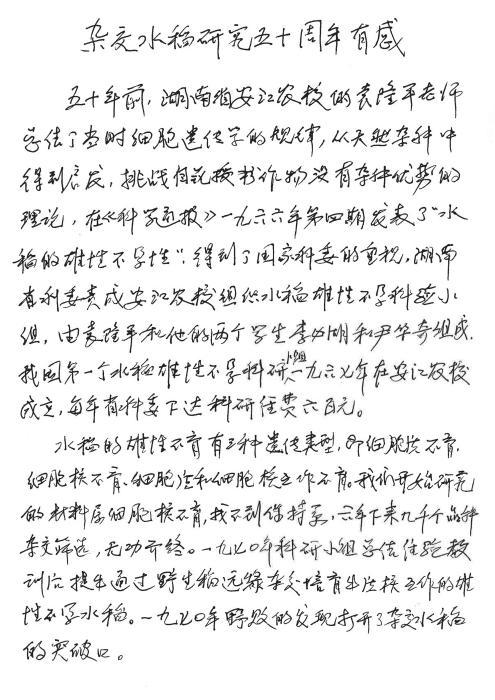 杂交水稻研究五十周年有感
五十年前，湖南省安江农校的袁隆平老师
总结了当时细胞遗传学的规律，从天然杂种中
得到启发，挑战自花授粉作物没有杂种优势的
理论，在《科学通报》一九六六年第四期发表了“水
稻的雄性不孕性”，得到了国家科委的重视，湖南
省科委责成安江农校组织水稻雄性不孕科研小
组，由袁隆平和他的两个学生李必湖和尹华奇组成。
我国第一个水稻雄性不孕科研小组一九六七年在安江农校
成立，每年省科委下达科研经费六百元。
水稻的雄性不育有三种遗传类型，即细胞质不育、
细胞核不育、细胞质和细胞核互作不育。我们开始研究
的材料属细胞核不育，找不到保持系，六年下来几千个品种
杂交筛选，无功而终。一九七〇年科研小组总结经验教
训后提出通过野生稻远缘杂交培育出质核互作的雄
性不孕水稻。一九七〇年野败的发现打开了杂交水稻
的突破口。